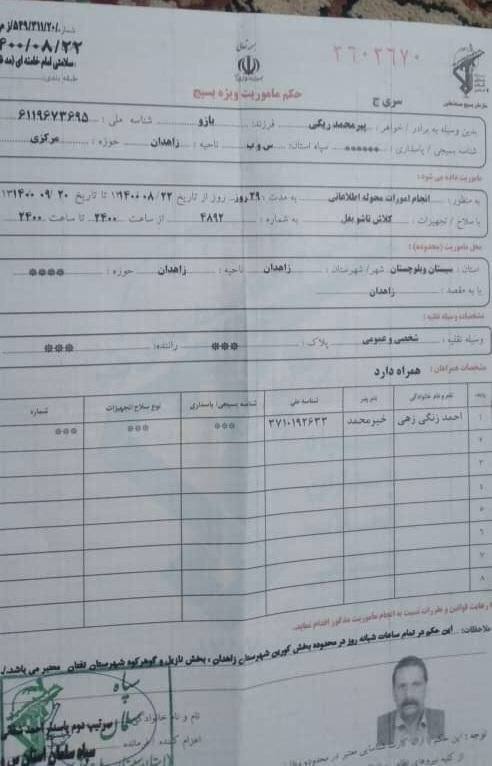 شماره: ۵۴۹/۳۱۱/۲۰/ز م
۴۰۰/۰۸/۲۲
سلامتی امام خامنه ای (مد
طبقه بندی:
۳۶۰۳۶۷۰
حکم ماموریت ویژه بسیج
سری ج
بدین وسیله به برادر / خواهر : پیرمحمد ریگی فرزند: بازو شناسه ملی : ۶۱۱۹۶۷۳۶۹۵
شناسه بسیجی / پاسداری : ****** سپاه استان: س و ب ناحیه : زاهدان حوزه : مرکزی
ماموریت داده می شود:
به منظور : انجام امورات محوله اطلاعاتی به مدت : ۲۹ روز روز از تاریخ ۱۴۰۰/۰۸/۲۲ تا تاریخ ۱۴۰۰/۰۹/۲۰
با سلاح / تجهیزات : کلاش تاشو بغل به شماره : ۴۸۹۲ از ساعت ۲۴۰۰ تا ساعت ۲۴۰۰
محل ماموریت (محدوده) :
استان : سیستان وبلوچستان شهر/ شهرستان : زاهدان ناحیه : زاهدان حوزه : ****
یا به مقصد : زاهدان
مشخصات وسیله نقلیه :
وسیله نقلیه : شخصی و عمومی پلاک : *** راننده: ***
مشخصات همراهان : همراه دارد
ردیف نام و نام خانوادگی نام پدر شناسه ملی شناسه بسیجی/ پاسداری نوع سلاح/تجهیزات شماره
۱ احمد زنگی زهی خیرمحمد ۳۷۱۰۱۹۲۶۳۳ *** *** ***
۲
۳
۴
۵
۶
۷
۸
رعایت قوانین و مقررات نسبت به انجام ماموریت مذکور اقدام نمایند.
ملاحظات: این حکم در تمام ساعات شبانه روز در محدوده بخش کورین شهرستان زاهدان ، بخش نازیل و گوهرکوه شهرستان تفتان معتبر می باشد./
نام و نام خانوادگی
سرتیپ دوم پاسدار احمد
اعزام کننده : فرمانده
سپاه سلمان استان س و
توجه : این حکم با ارائه کارت شناسایی معتبر در محدوده